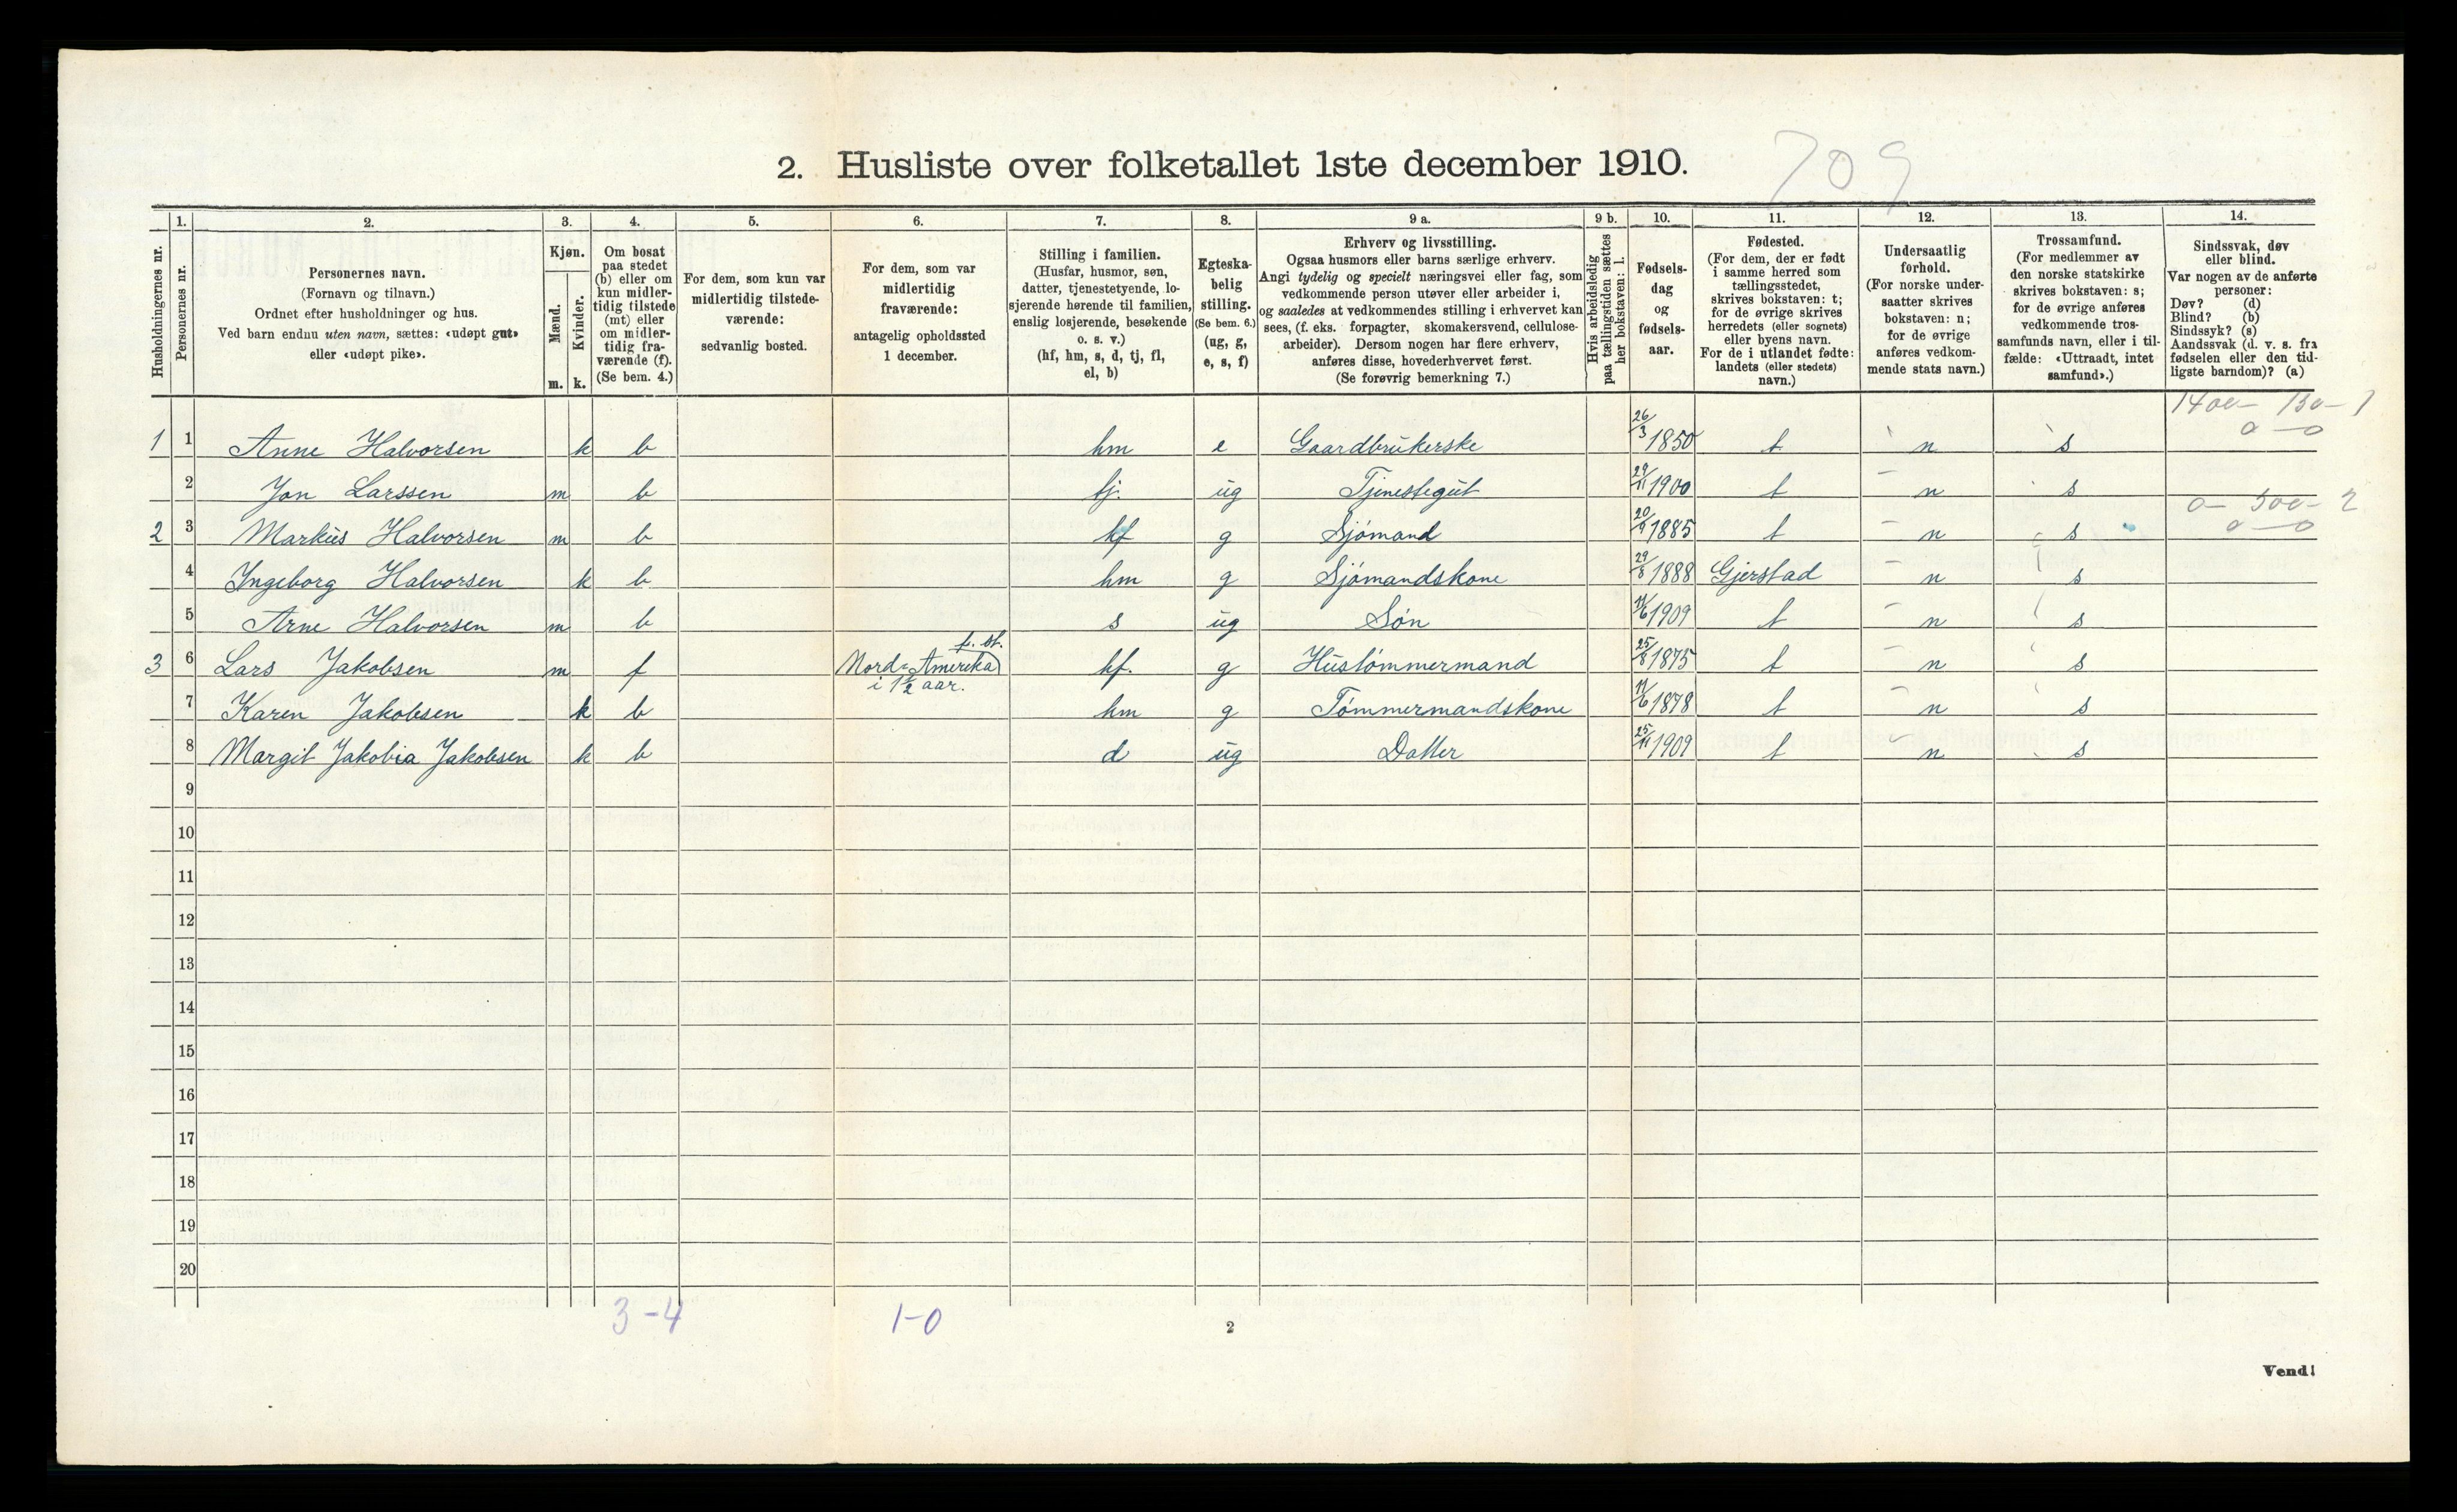 709
2. Husliste over folketallet 1ste december 1910.
1. 2. 3. 4. 5. 6. 7. 8. 9 a. 9 b. 10. 11. 12. 13. 14.
Husholdningernes nr.
Personernes nr.
Personernes navn.
(Fornavn og tilnavn.)
Ordnet efter husholdninger og hus.
Ved barn endnu uten navn, sættes: «udøpt gut»
eller «udøpt pike».
Kjøn.
Mænd.
Kvinder.
m. k.
Om bosat
paa stedet
(b) eller om
kun midler-
tidig tilstede
(mt) eller
om midler-
tidig fra-
værende (f).
(Se bem. 4.)
For dem, som kun var
midlertidig tilstede-
værende:
sedvanlig bosted.
For dem, som var
midlertidig
fraværende:
antagelig opholdssted
1 december.
Stilling i familien.
(Husfar, husmor, søn,
datter, tjenestetyende, lo-
sjerende hørende til familien,
enslig losjerende, besøkende
o. s. v.)
(hf, hm, s, d, tj, fl,
el, b)
Egteska-
belig
stilling.
(Se bem. 6.)
(ug, g,
e, s, f)
Erhverv og livsstilling.
Ogsaa husmors eller barns særlige erhverv.
Angi tydelig og specielt næringsvei eller fag, som
vedkommende person utøver eller arbeider i,
og saaledes at vedkommendes stilling i erhvervet kan
sees, (f. eks. forpagter, skomakersvend, cellulose-
arbeider). Dersom nogen har flere erhverv,
anføres disse, hovederhvervet først.
(Se forøvrig bemerkning 7.)
Hvis arbeidsledig
paa tællingstiden sættes
her bokstaven: l.
Fødsels-
dag
og
fødsels-
aar.
Fødested.
(For dem, der er født
i samme herred som
tællingsstedet,
skrives bokstaven: t;
for de øvrige skrives
herredets (eller sognets)
eller byens navn.
For de i utlandet fødte:
landets (eller stedets)
navn.)
Undersaatlig
forhold.
(For norske under-
saatter skrives
bokstaven: n;
for de øvrige
anføres vedkom-
mende stats navn.)
Trossamfund.
(For medlemmer av
den norske statskirke
skrives bokstaven: s;
for de øvrige anføres
vedkommende tros-
samfunds navn, eller i til-
fælde: «Uttraadt, intet
samfund».)
Sindssvak, døv
eller blind.
Var nogen av de anførte
personer:
Døv? (d)
Blind? (b)
Sindssyk? (s)
Aandssvak (d. v. s. fra
fødselen eller den tid-
ligste barndom)? (a)
1400- 130- 1
0 — 0
1 1 Anne Halvorsen k b hm e Gaardbrukerske 26/3 1850 t n s
2 Jon Larssen m b tj. ug Tjenestegut 29/11 1900 t n s
0- 500- 2
0 — 0
2 3 Markus Halvorsen m b hf g Sjømand 20/9 1885 t n s
4 Ingeborg Halvorsen k b hm g Sjømandskone 29/8 1888 Gjerstad n s
5 Arne Halvorsen m b s ug Søn 11/6 1909 t n s
p. st.
3 6 Lars Jakobsen m f Nord-Amerika hf. g Hustømmermand 25/8 1875 t n s
i 1½ aar.
7 Karen Jakobsen k b hm g Tømmermandskone 11/6 1878 t n s
8 Margit Jakobia Jakobsen k b d ug Datter 25/11 1909 t n s
9
10
11
12
13
14
15
16
17
18
19
20
3-4 1-0
2
Vend!